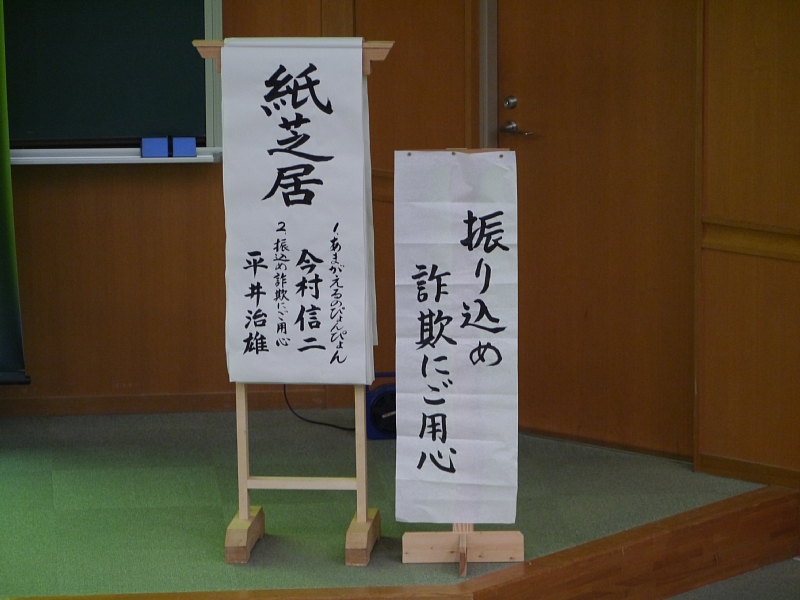 紙芝居
1.あまがえるのぴょんぴょん
今村信二
2.振込め詐欺にご用心
平井治雄
振り込め
詐欺にご用心